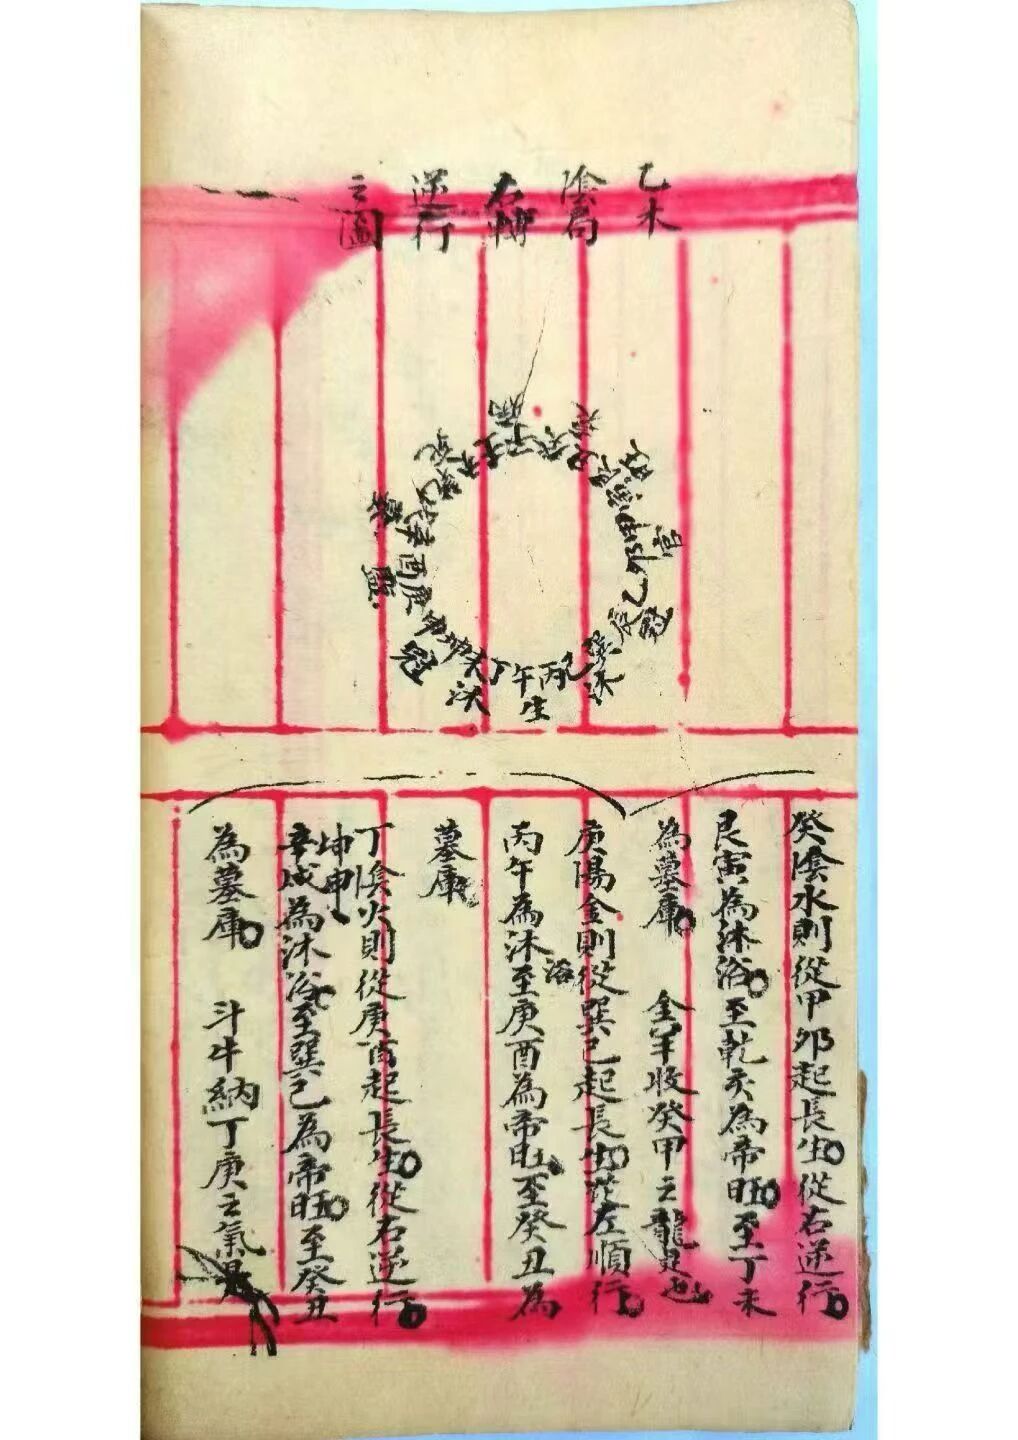 乙木
陰局
右轉
逆行
之圖
病
衰
旺
官
冠
沐
生
沐
冠
壬子癸丑艮寅甲卯乙辰巽巳丙午丁未坤申庚酉辛
癸陰水則從甲卯起長生從右逆行
艮寅為沐浴至乾亥為帝旺至丁未
為墓庫 金羊收癸甲之龍是也
庚陽金則從巽巳起長生從左順行
丙午為沐浴至庚酉為帝旺至癸丑為
墓庫
丁陰火則從庚酉起長生從右逆行
坤申
辛戌為沐浴至巽巳為帝旺至癸丑
為墓庫 斗牛納丁庚之氣是